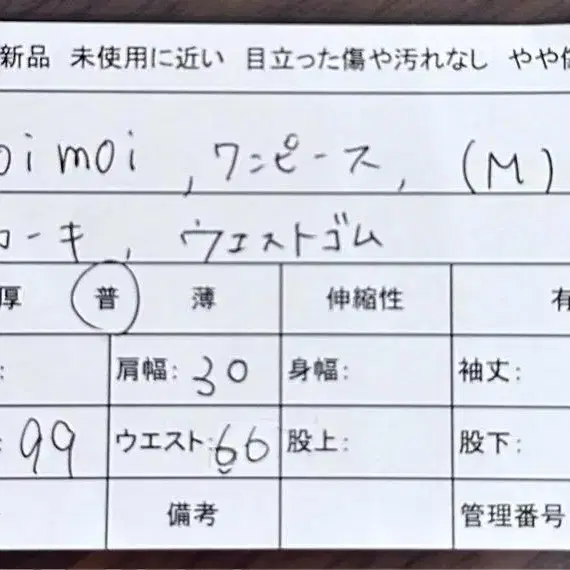 新品 未使用に近い 目立った傷や汚れなし やや
oi moi , ワンピース, (M)
ーキ, ウエストゴム
厚 普 薄 伸縮性 有
: 肩幅: 30 身幅: 袖丈:
: 99 ウエスト: 66 股上: 股下:
備考 管理番号